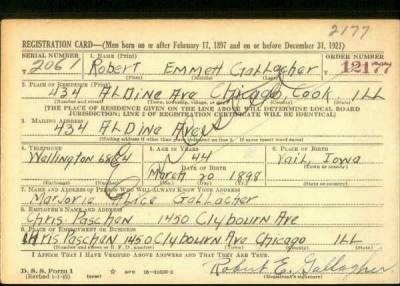 2177
REGISTRATION CARD—(Men born on or after February 17, 1897 and on or before December 31, 1921)
SERIAL NUMBER 1. NAME (Print) ORDER NUMBER
2067 Robert Emmett Gallagher 12177
(First) (Middle) (Last)
2. PLACE OF RESIDENCE (Print)
434 Aldine Ave Chicago Cook ILL
(Number and street) (Town, township, village, or city) (County) (State)
[THE PLACE OF RESIDENCE GIVEN ON THE LINE ABOVE WILL DETERMINE LOCAL BOARD
JURISDICTION; LINE 2 OF REGISTRATION CERTIFICATE WILL BE IDENTICAL]
3. MAILING ADDRESS
434 Aldine Ave
[Mailing address if other than place indicated on line 2. If same insert word same]
4. TELEPHONE 5. AGE IN YEARS 6. PLACE OF BIRTH
Wellington 44 Vail, Iowa
DATE OF BIRTH
March 20 1898
(Exchange) (Number) (Mo.) (Day) (Yr.) (State or country)
7. NAME AND ADDRESS OF PERSON WHO WILL ALWAYS KNOW YOUR ADDRESS
Marjorie Alice Gallagher
8. EMPLOYER'S NAME AND ADDRESS
Chris Paschen 1450 Clybourn Ave
9. PLACE OF EMPLOYMENT OR BUSINESS
Chris Paschen 1450 Clybourn Ave Chicago ILL
(Number and street or R. F. D. number) (Town) (County) (State)
I AFFIRM THAT I HAVE VERIFIED ABOVE ANSWERS AND THAT THEY ARE TRUE.
D. S. S. Form 1
(Revised 1-1-42) GPO Robert E. Gallagher